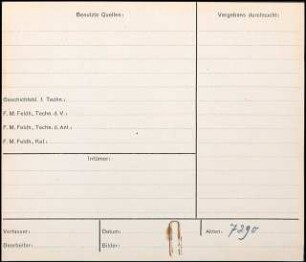 Benutzte Quellen:
Vergebens durchsucht:
Geschichtsbl. f. Techn.:
F. M. Feldh., Techn. d. V.:
F. M. Feldh., Techn. d. Ant.:
F. M. Feldh., Kal.:
Irrtümer:
Verfasser:
Datum:
Akten: 7290
Bearbeiter:
Bilder: